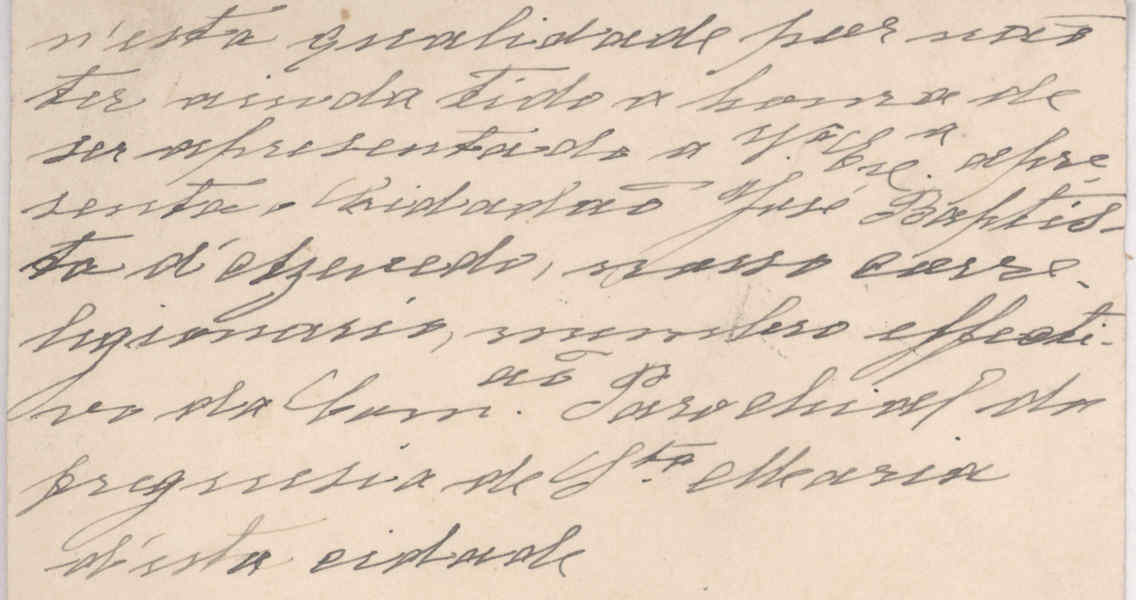 n'esta qualidade por não
ter ainda tido a honra de
ser apresentado a V. Ex.ª apre
senta o Cidadão José Baptis-
ta d'Azevedo, nosso corre-
ligionario, membro effecti-
vo da Com.ão Parochial da
freguesia de S.ta Maria
d'esta cidade